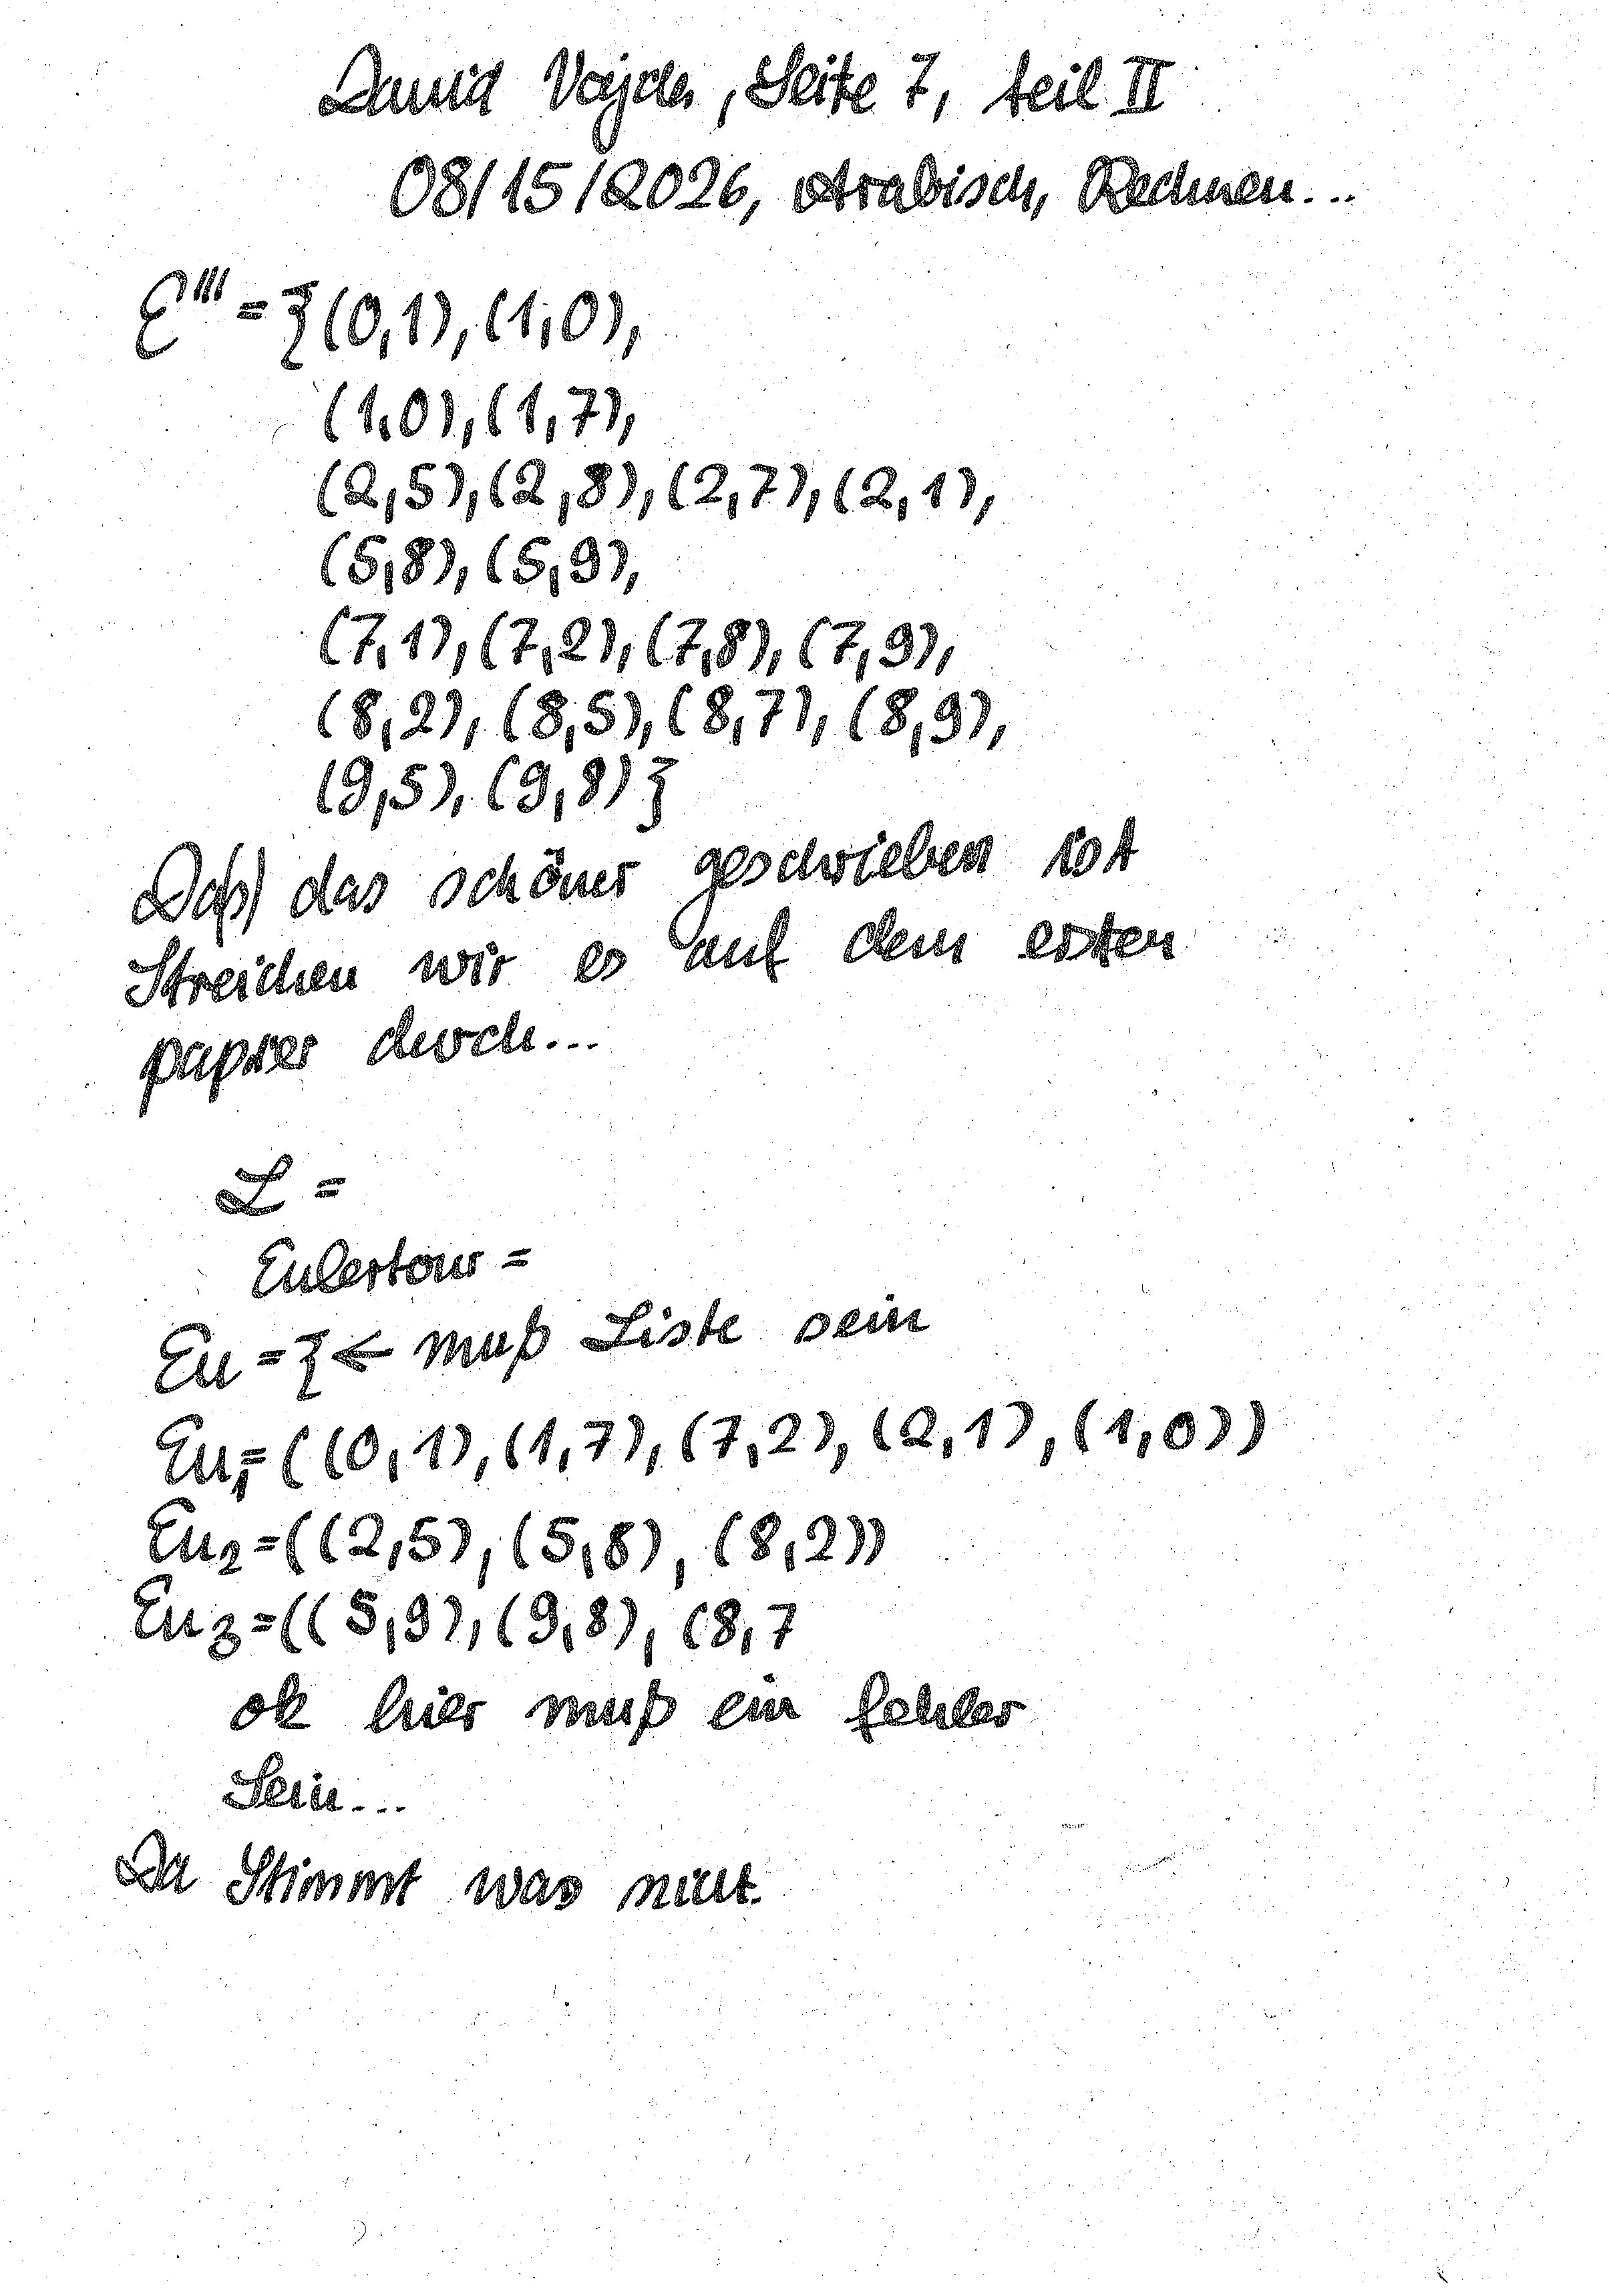 David Vajda, Seite 7, teil II
08/15/2026, Arabisch, Rechnen...
E''' = {(0,1), (1,0),
(1,0), (1,7),
(2,5), (2,8), (2,7), (2,1),
(5,8), (5,9),
(7,1), (7,2), (7,8), (7,9),
(8,2), (8,5), (8,7), (8,9),
(9,5), (9,8)}
Daß) das schöner geschrieben ist
Streichen wir es auf dem ersten
papier durch...
L =
Eulertour =
Eu = { ← muß Liste sein
Eu₁ = ((0,1), (1,7), (7,2), (2,1), (1,0))
Eu₂ = ((2,5), (5,8), (8,2))
Eu₃ = ((5,9), (9,8), (8,7
ok hier muß ein fehler
Sein...
Da Stimmt was nicht.